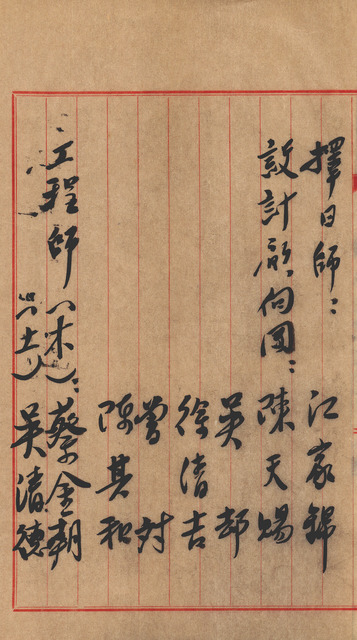 擇日師：江家錦
設計顧問團：陳天賜
吳郡
徐清吉
曾对
陈其和
工程師（木）：蔡金朝
（土）：吳清德